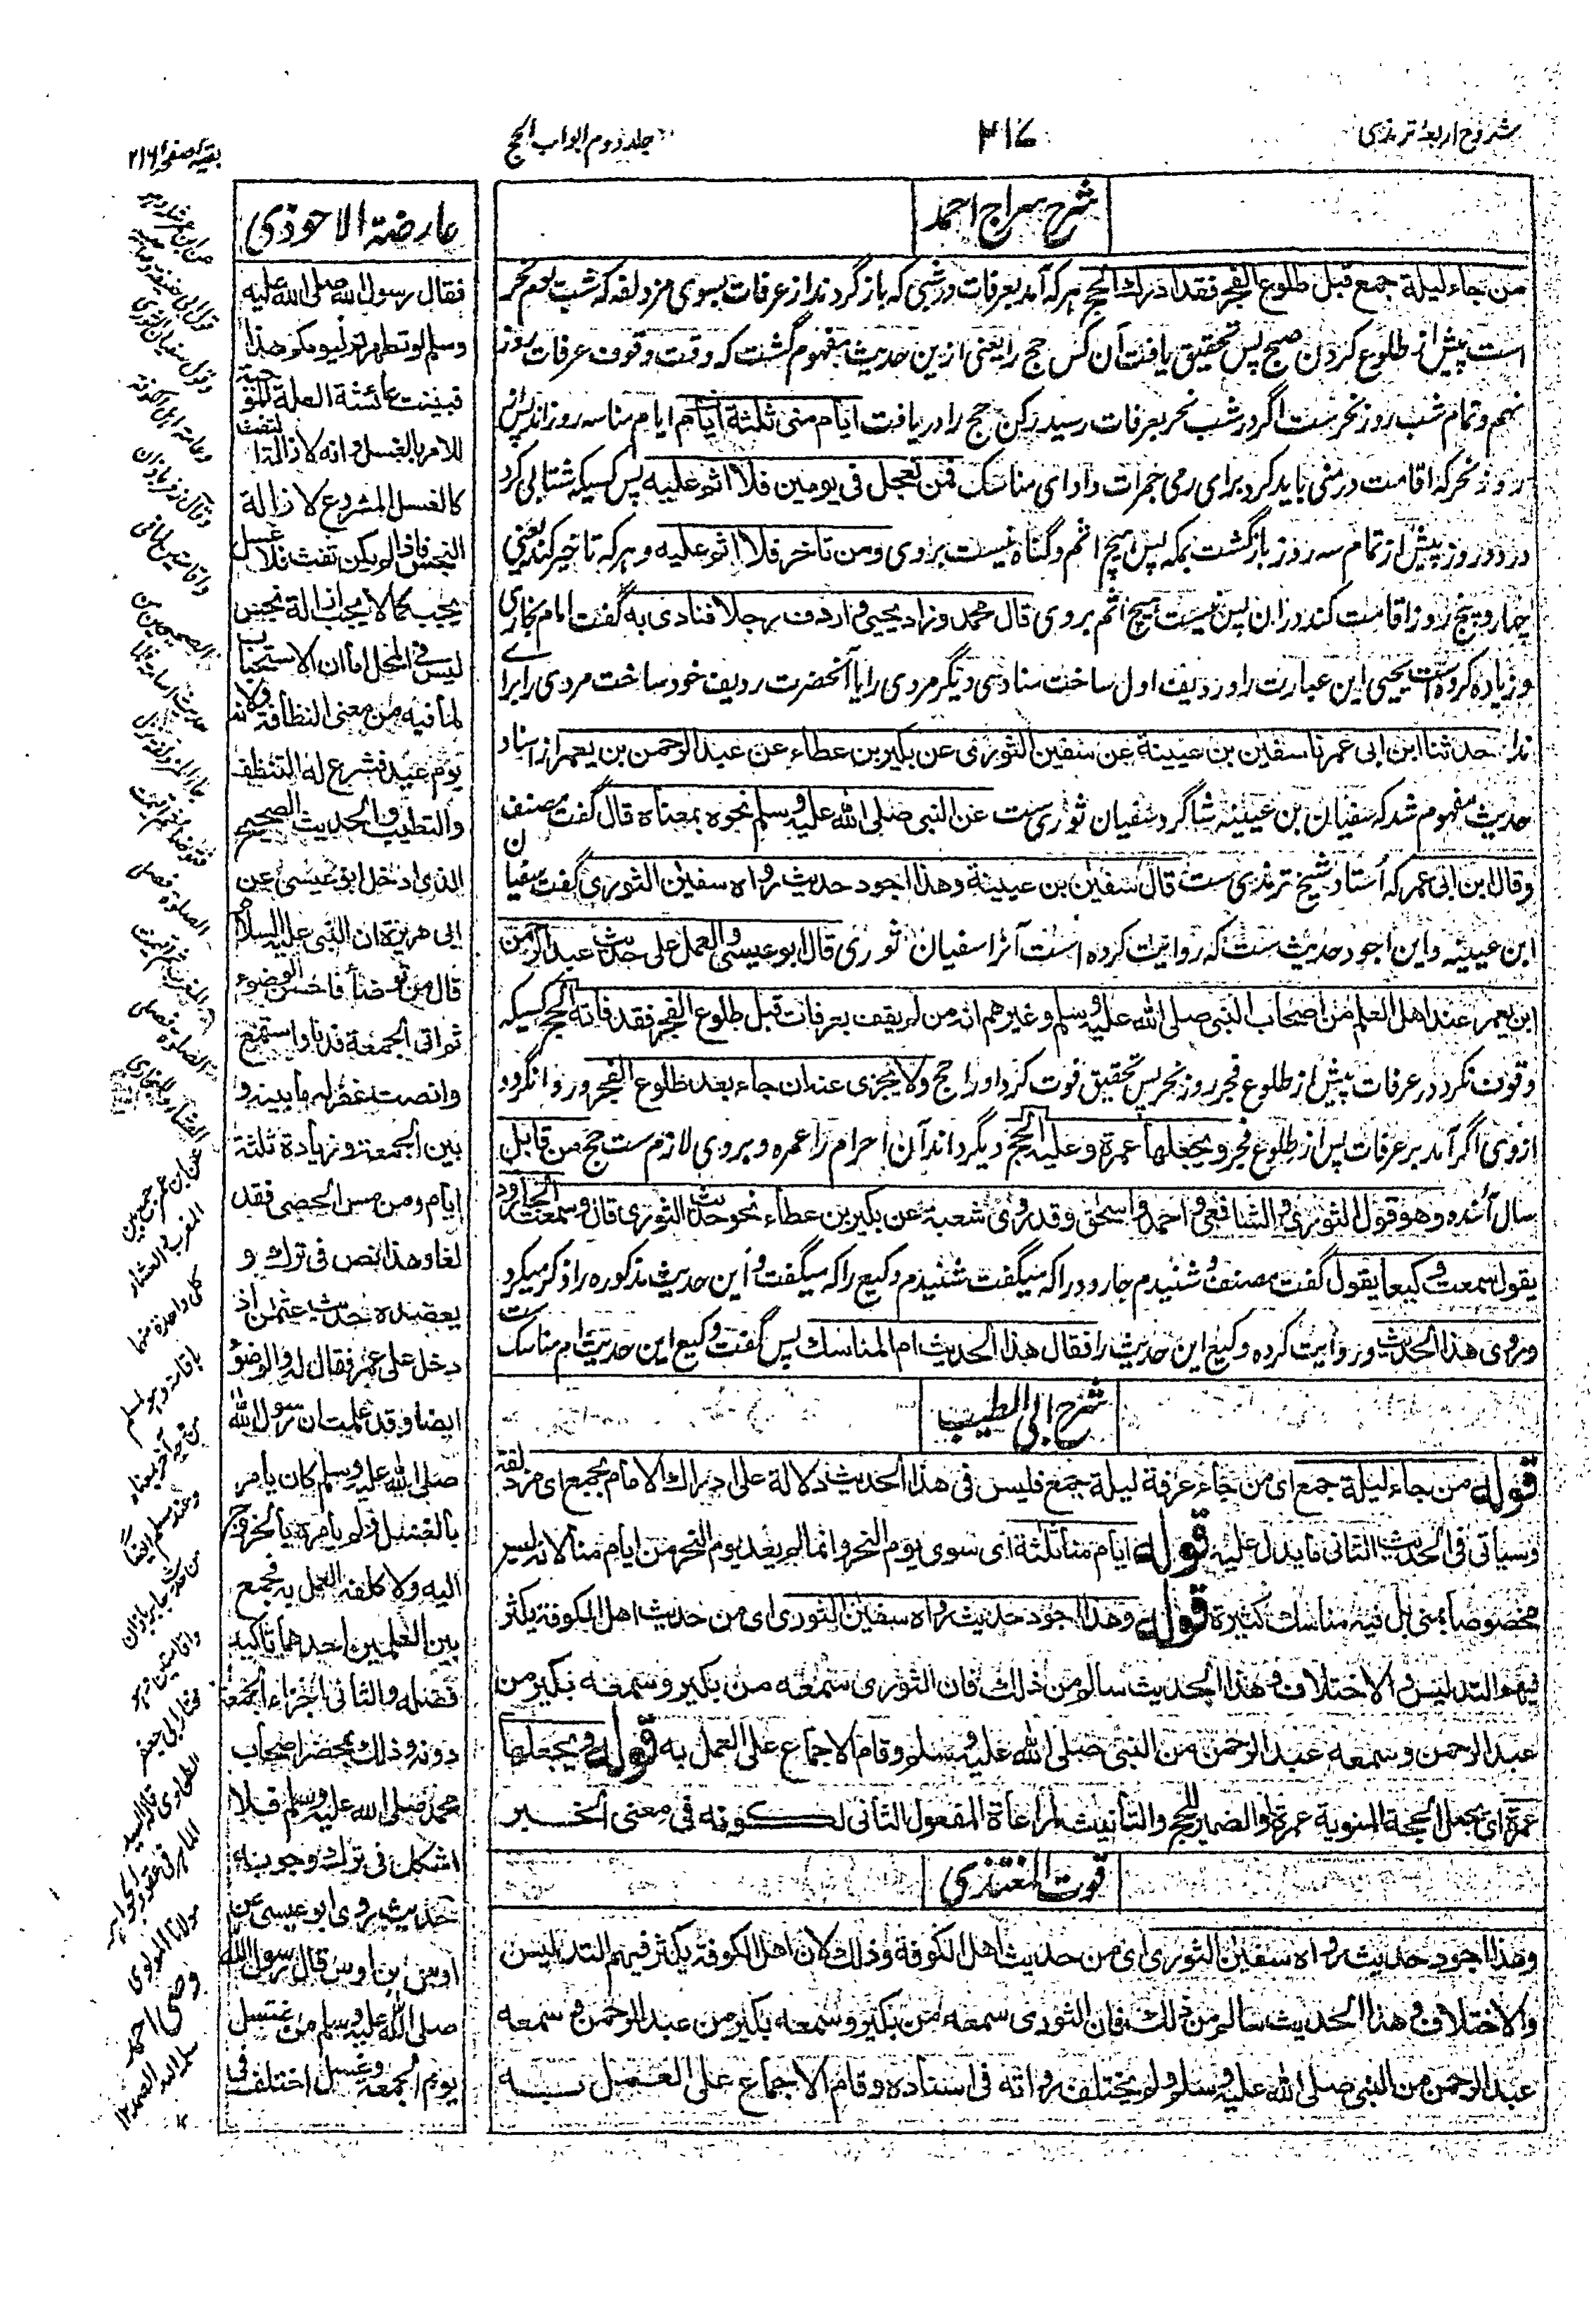 شروح اربعهٔ ترمذی
۳۱۷
جلد دوم ابواب الحج
بقیه صفحه ۳۱۶
شرح سراج احمد
من جاء لیلة جمع قبل طلوع الفجر فقد ادرك الحج هر که آمد بعرفات در شبی که باز گردند از عرفات بسوی مزدلفه که شب نحر
است پیش از طلوع کردن صبح پس تحقیق یافت آن کس حج را یعنی ازین حدیث مفهوم گشت که وقت وقوف عرفات روز
نهم و تمام شب روز نحرست اگر در شب نحر بعرفات رسید رکن حج را دریافت ایام منی ثلثة ایام ایام منا سه روز اند پس از
روز نحر که اقامت در منی باید کرد برای رمی جمرات و ادای مناسک فمن تعجل فی یومین فلا اثم علیه پس کسیکه شتابی کرد
در دو روز پیش از تمام سه روز بازگشت بمکه پس هیچ اثم و گناه نیست بر وی ومن تاخر فلا اثم علیه و هر که تاخیر کند یعنی
چهار و پنج روز اقامت کند دران پس نیست هیچ اثم بر وی قال محمد وزاد یحیی واردف رجلا فنادی به گفت امام بخاری
و زیاده کرده است یحیی این عبارت را و ردیف اول ساخت منادی دیگر مردی را یا آنحضرت ردیف خود ساخت مردی را برای
ندا حدثنا ابن ابی عمر نا سفین بن عیینة عن سفین الثوری عن بکیر بن عطاء عن عبد الرحمن بن یعمر از اسناد
حدیث مفهوم شد که سفیان بن عیینه شاگرد سفیان ثوری ست عن النبی صلی الله علیه وسلم نحوه بمعناه قال گفت مصنف
وقال ابن ابی عمر که استاد شیخ ترمذی ست قال سفین بن عیینة وهذا اجود حدیث رواه سفین الثوری گفت سفیان
ابن عیینه و این اجود حدیث ست که روایت کرده است آنرا سفیان ثوری قال ابو عیسی والعمل علی حدیث عبد الرحمن
ابن یعمر عند اهل العلم من اصحاب النبی صلی الله علیه وسلم وغیرهم انه من لم یقف بعرفات قبل طلوع الفجر فقد فاته الحج کسیکه
وقوف نکرد در عرفات پیش از طلوع فجر روز نحر پس تحقیق فوت کرد او را حج ولا یجزی عنه ان جاء بعد طلوع الفجر و روا نگردد
از وی اگر آمد بر عرفات پس از طلوع فجر ویجعلها عمرة وعلیه الحج دیگر داند آن احرام را عمره و بر وی لازم ست حج من قابل
سال آئنده وهو قول الثوری والشافعی واحمد واسحق وقد روی شعبة عن بکیر بن عطاء نحو حدیث الثوری قال وسمعت الجارود
یقول سمعت وکیعا یقول گفت مصنف و شنیدم جارود را که میگفت شنیدم وکیع را که میگفت و این حدیث مذکوره را ذکر میکرد
وروی هذا الحدیث و روایت کرده وکیع این حدیث را فقال هذا الحدیث ام المناسك پس گفت وکیع این حدیث ام مناسک ست
شرح ابی الطیب
قوله من جاء لیلة جمع ای من جاء عرفة لیلة جمع فلیس فی هذا الحدیث دلالة علی ادراك الامام بجمع ای مزدلفة
وسیاتی فی الحدیث الثانی ما یدل علیه قوله ایام منا ثلثة ای سوی یوم النحر وانما لم یعد یوم النحر من ایام منا لانه لیس
مخصوصا بمنی بل فیه مناسك کثیرة قوله وهذا اجود حدیث رواه سفین الثوری ای من حدیث اهل الکوفة یکثر
فیهم التدلیس والاختلاف وهذا الحدیث سالم من ذلك فان الثوری سمعه من بکیر وسمعه بکیر من
عبد الرحمن وسمعه عبد الرحمن من النبی صلی الله علیه وسلم وقام الاجماع علی العمل به قوله ویجعلها
عمرة ای یجعل الحجة المنویة عمرة او الضمیر للحج والتأنیث لمراعاة المفعول الثانی لکونه فی معنی الخبر
قوت المغتذی
وهذا اجود حدیث رواه سفین الثوری ای من حدیث اهل الکوفة وذلك لان اهل الکوفة یکثر فیهم التدلیس
والاختلاف وهذا الحدیث سالم من ذلك فان الثوری سمعه من بکیر وسمعه بکیر من عبد الرحمن وسمعه
عبد الرحمن من النبی صلی الله علیه وسلم ولم یختلف رواته فی اسناده وقام الاجماع علی العمل به
عارضة الاحوذی
فقال رسول الله صلی الله علیه
وسلم لو تطهرتم لیومکم هذا
فبینت عائشة العلة الموجبة
للامر بالغسل وانه لازالة التفث
کالغسل المشروع لازالة
النجس فاذا لم یکن تفث فلا غسل
یجب کما لا یجب ازالة نجس
لیس فی المحل اما ان الاستحباب
لما فیه من معنی النظافة ولانه
یوم عید فشرع له التنظف
والتطیب والحدیث الصحیح
الذی ادخل ابو عیسی عن
ابی هریرة ان النبی علیه السلام
قال من توضأ فاحسن الوضوء
ثم اتی الجمعة فدنا واستمع
وانصت غفر له ما بینه و
بین الجمعة وزیادة ثلثة
ایام ومن مس الحصی فقد
لغا وهذا نص فی ترك و
یعضده حدیث عثمن اذ
دخل علی عمر فقال له والوضوء
ایضا وقد علمت ان رسول الله
صلی الله علیه وسلم کان یامر
بالغسل فلم یامره بالخروج
الیه ولا کلفه العمل به فجمع
بین العلمین احدهما تاکید
فضله والثانی اجزاء الجمعة
دونه وذلك بمحضر اصحاب
محمد صلی الله علیه وسلم فلا
اشکل فی ترك وجوبه
حدیث روی ابو عیسی عن
اوس بن اوس قال رسول الله
صلی الله علیه وسلم من غتسل
یوم الجمعة وغسل اختلف فی
قول ابی حنیفة
وقول سفیان الثوری
باذان
واقامتین
الصحیحین من
حدیث اسامة
عن ابن عمر جمع بین
المغرب والعشاء
کل واحدة منهما
باقامة
من وجه آخر بمعناه
وعند مسلم ایضا
من حدیث جابر باذان
واقامتین وهو
مختار ابی جعفر
الطحاوی
مولانا المولوی
وصی احمد
سلمه الله الصمد ۱۲